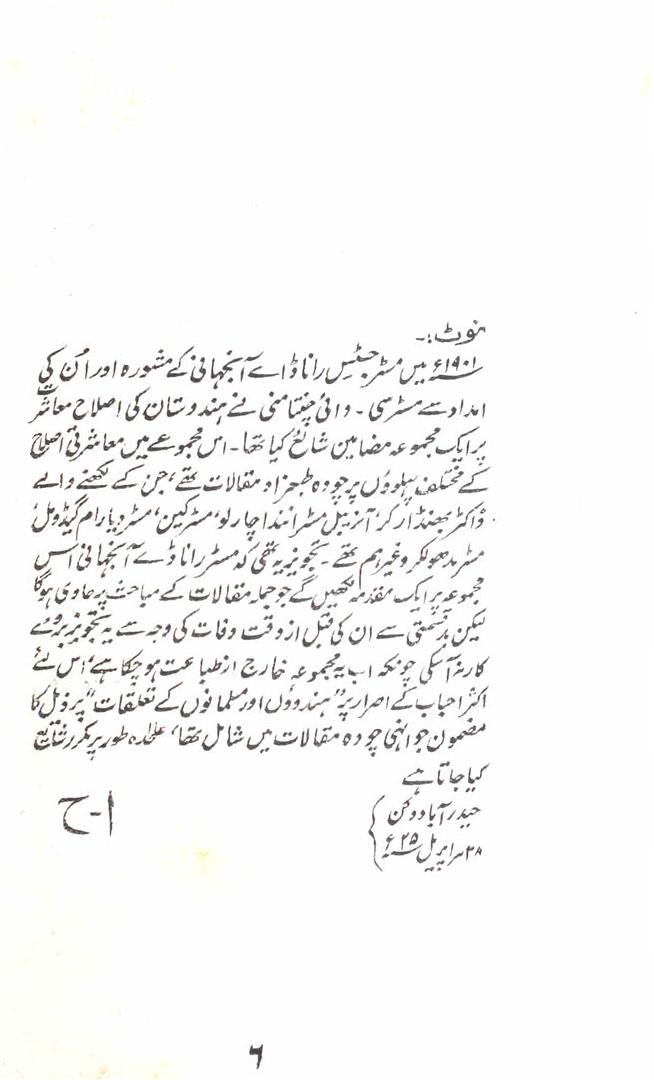 نوٹ:۔
۱۹۰۱ء میں مسٹر جسٹس راناڈے آنجہانی کے مشورہ اور اُن کی
امداد سے مسٹر سی ۔ وائی چنتامنی نے ہندوستان کی اصلاح معاشرت
پر ایک مجموعہ مضامین شائع کیا تھا۔ اس مجموعے میں معاشرتی اصلاح
کے مختلف پہلوؤں پر چودہ طبعزاد مقالات تھے، جن کے لکھنے والے
ڈاکٹر بھنڈارکر، آنریبل مسٹر انندا چارلو، مسٹر کین، مسٹر دیا رام گیڈومل،
مسٹر مدھولکر وغیرہم تھے ۔ تجویز یہ تھی کہ مسٹر راناڈے آنجہانی اس
مجموعہ پر ایک مقدمہ لکھیں گے جو جملہ مقالات کے مباحث پر حاوی ہوگا
لیکن بدقسمتی سے ان کی قبل از وقت وفات کی وجہ سے یہ تجویز بروے
کار نہ آسکی چونکہ اب یہ مجموعہ خارج از طباعت ہو چکا ہے، اس لئے
اکثر احباب کے اصرار پر "ہندوؤں اور مسلمانوں کے تعلقات" پر ذیل کا
مضمون جو انہی چودہ مقالات میں شامل تھا، علٰحدہ طور پر مکرر شایع
کیا جاتا ہے
حیدرآباد دکن
۲۸ اپریل ۲۵ء
ا۔ح
۶